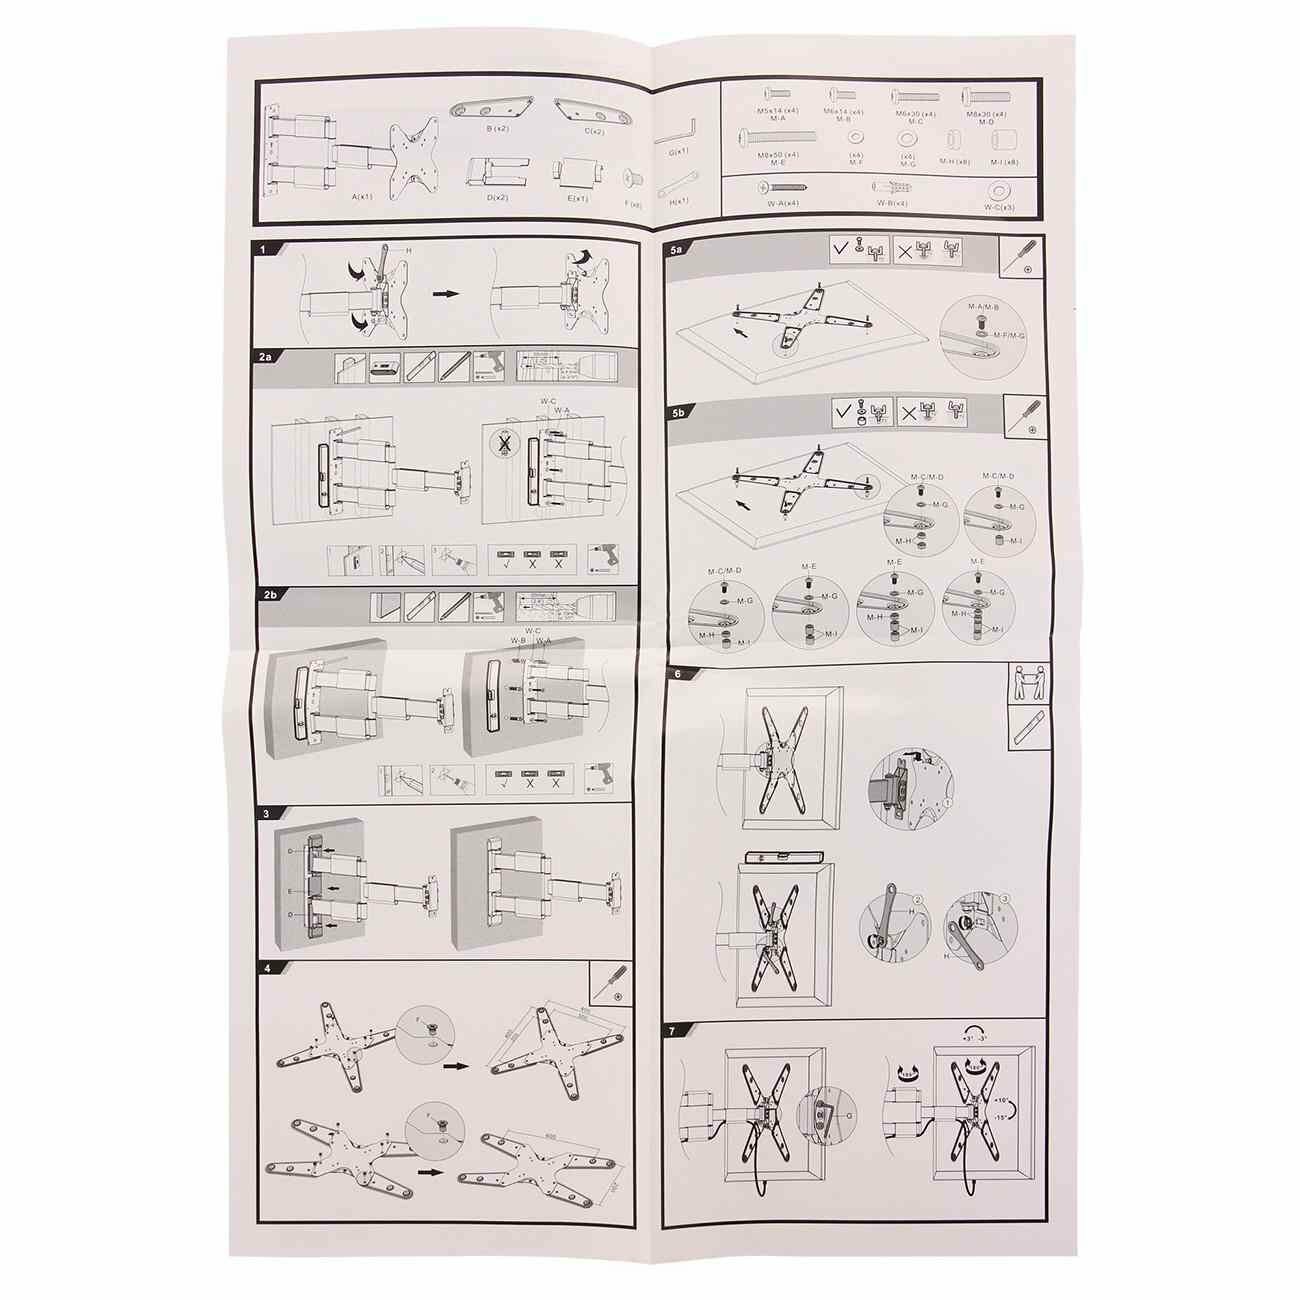 A(x1)
B (x2)
C(x2)
D(x2)
E(x1)
F (x8)
G(x1)
H(x1)
M5x14 (x4)
M-A
M6x14 (x4)
M-B
M6x30 (x4)
M-C
M8x30 (x4)
M-D
M8x50 (x4)
M-E
(x4)
M-F
(x4)
M-G
M-H (x8)
M-I (x8)
W-A(x4)
W-B(x4)
W-C(x3)
1
H
2a
W-C
W-A
1
2
3
2b
W-C
W-B
W-A
1
2
3
D
E
D
4
F
F
400
200
5a
M-A/M-B
M-F/M-G
5b
M-C/M-D
M-G
M-H
M-C/M-D
M-G
M-I
M-C/M-D
M-G
M-H
M-I
M-E
M-G
M-I
M-E
M-G
M-H
M-I
M-E
M-G
M-H
M-I
6
1
H
2
H
3
7
G
+3° -3°
180°
180°
+10°
-15°